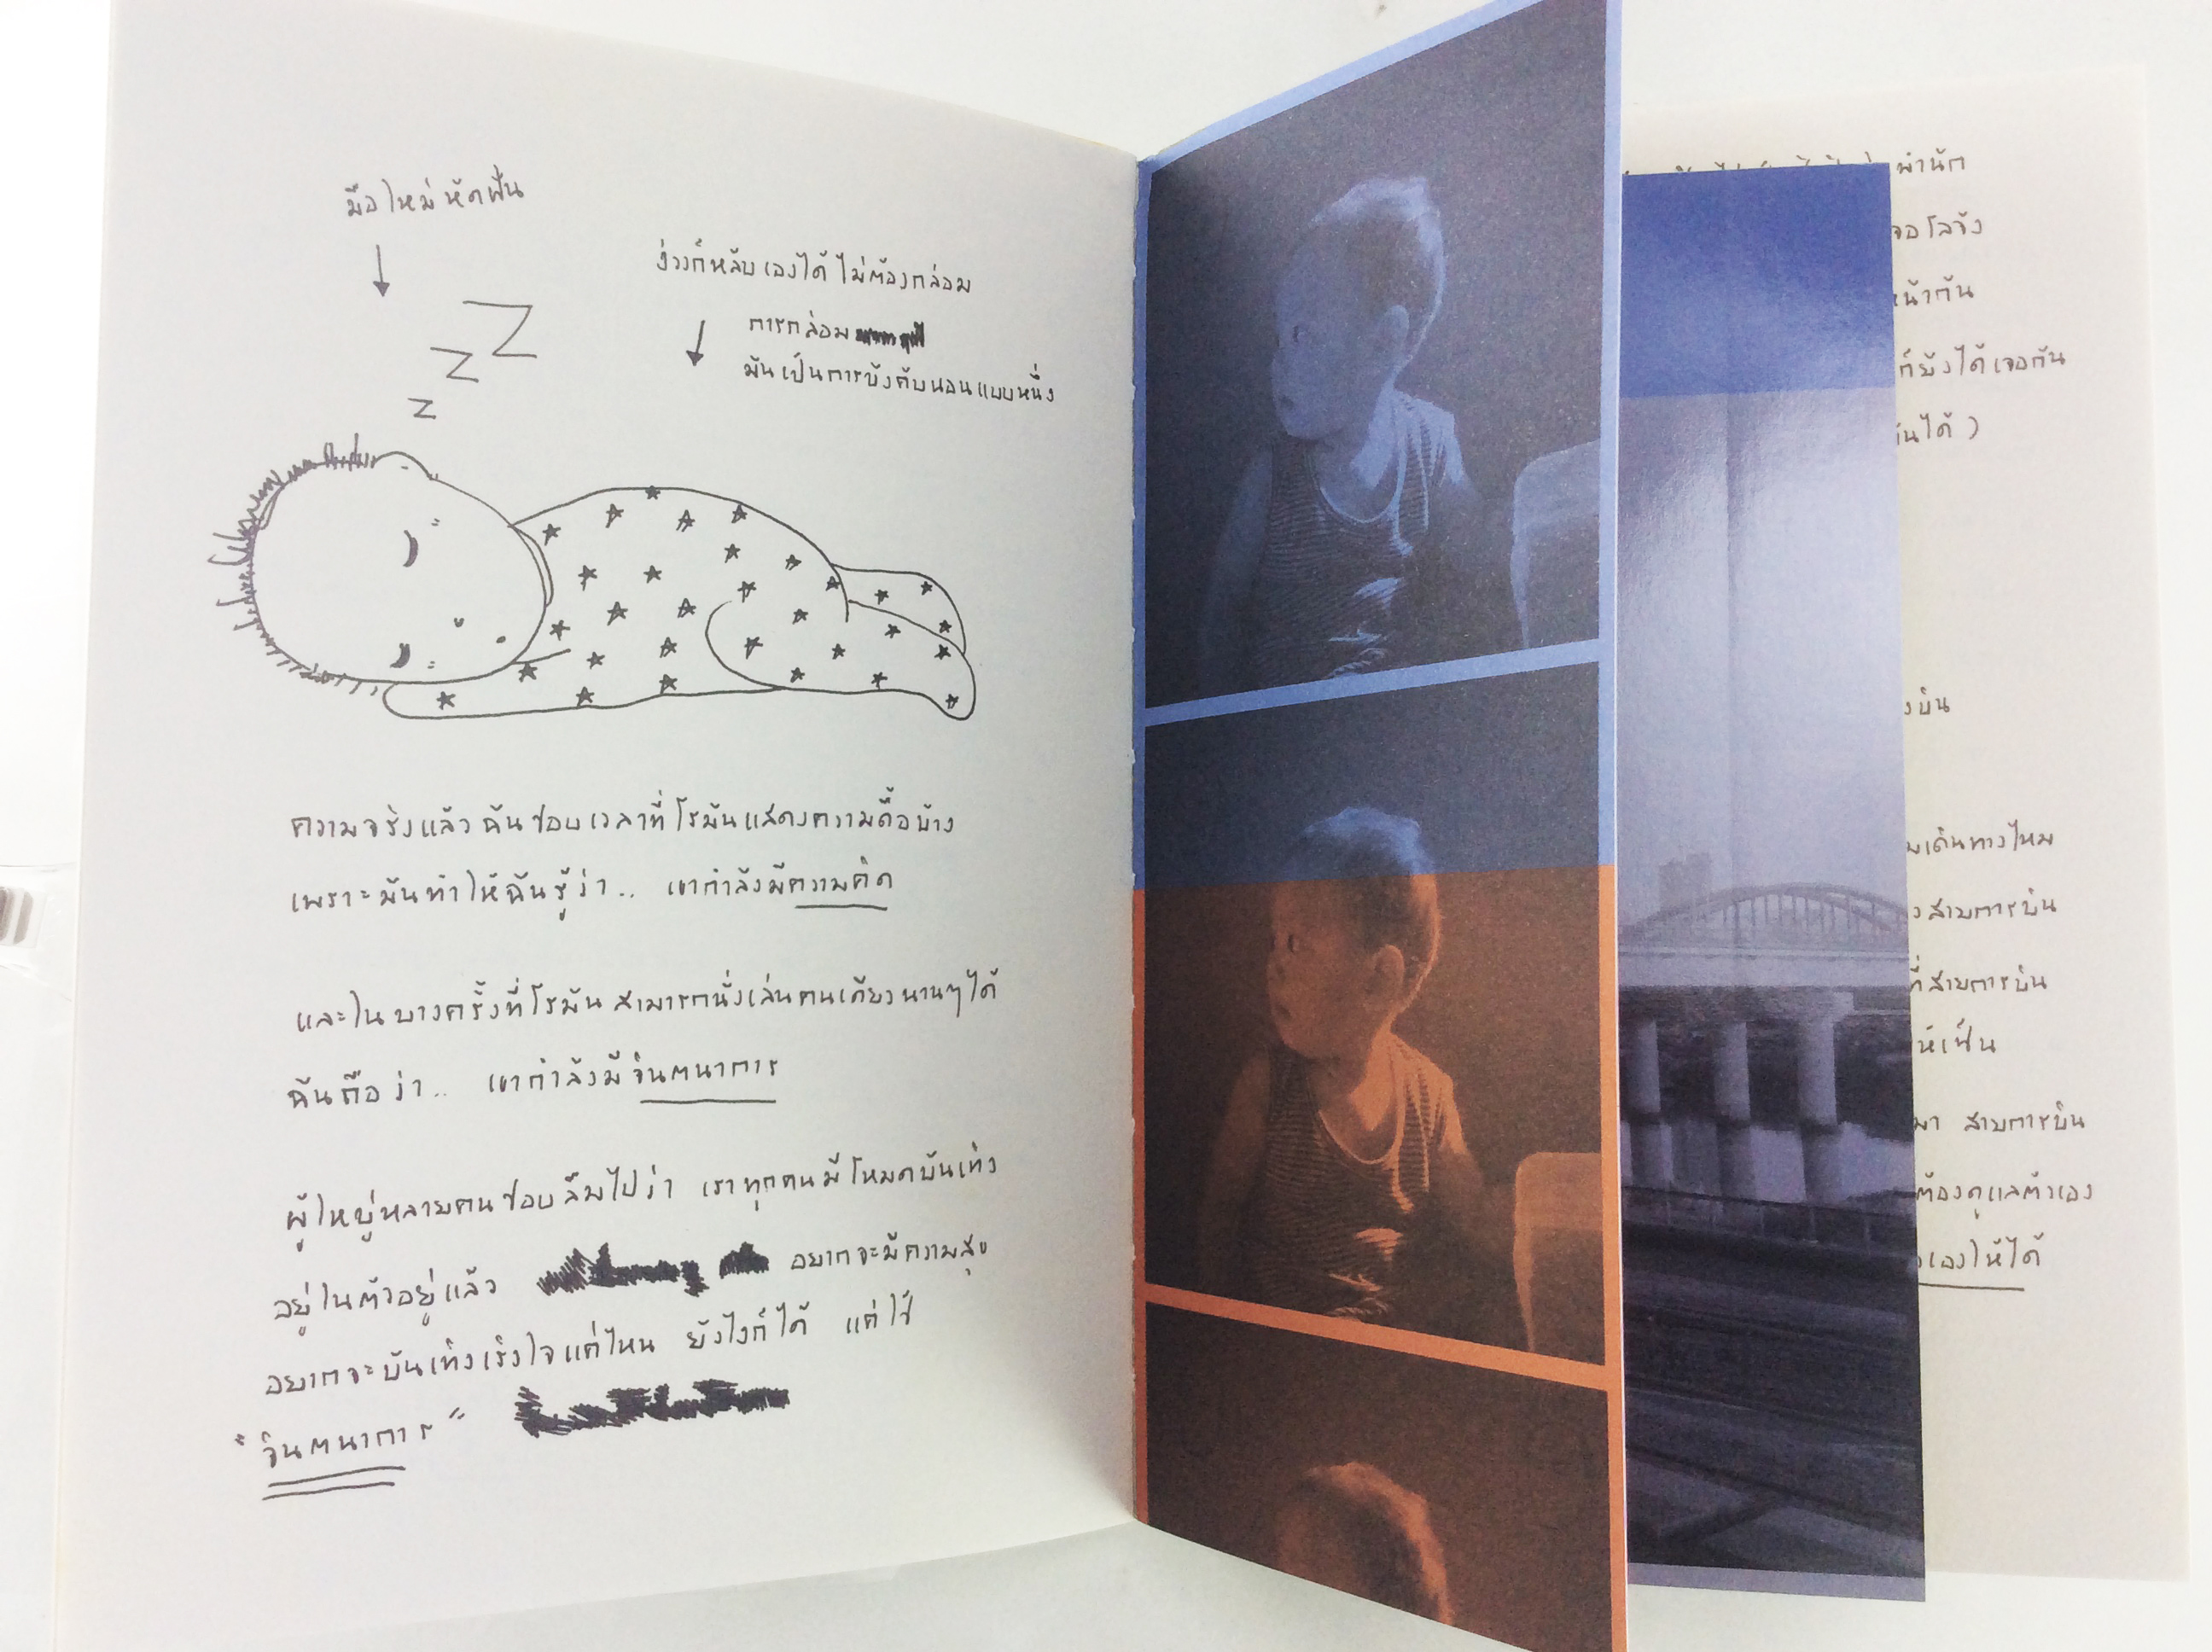 มือใหม่หัดฝัน
ง่วงก็หลับเองได้ ไม่ต้องกล่อม
การกล่อม
มันเป็นการบังคับนอนแบบหนึ่ง
z z z
ความจริงแล้ว ฉันชอบเวลาที่โรมันแสดงความดื้อบ้าง
เพราะมันทำให้ฉันรู้ว่า.. เขากำลังมีความคิด
และในบางครั้งที่โรมันสามารถนั่งเล่นคนเดียวนานๆได้
ฉันถือว่า.. เขากำลังมีจินตนาการ
ผู้ใหญ่หลายคนชอบลืมไปว่า เราทุกคนมีโหมดบันเทิง
อยู่ในตัวอยู่แล้ว อยากจะมีความสุข
อยากจะบันเทิงเริงใจแค่ไหน ยังไงก็ได้ แค่ใช้
"จินตนาการ"
พำนัก
เจอโลจัง
หน้ากัน
ก็ยังได้เจอกัน
กันได้)
งบิน
มเดินทางไหม
สายการบิน
ที่สายการบิน
ให้เป็น
มา สายการบิน
ต้องดูแลตัวเอง
วเองให้ได้